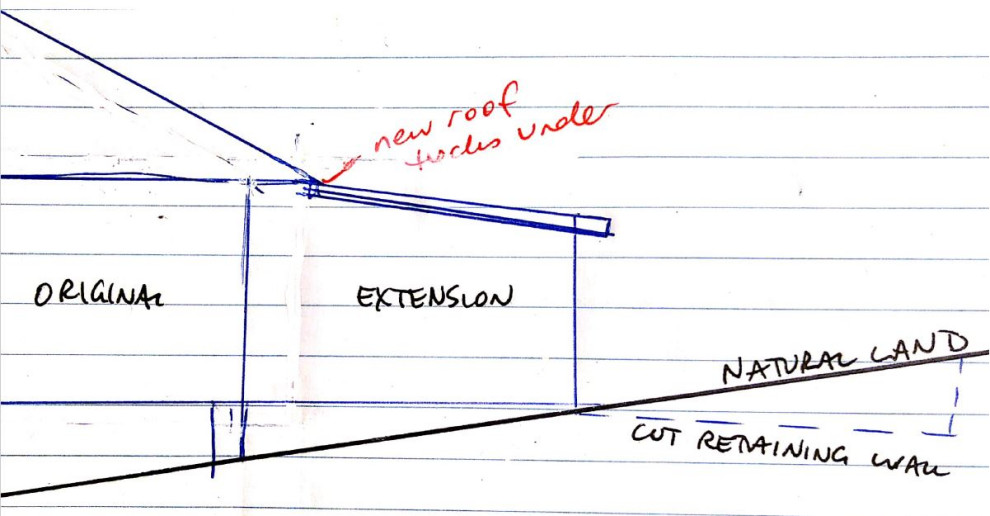 new roof
tucks under
ORIGINAL
EXTENSION
NATURAL LAND
CUT RETAINING WALL